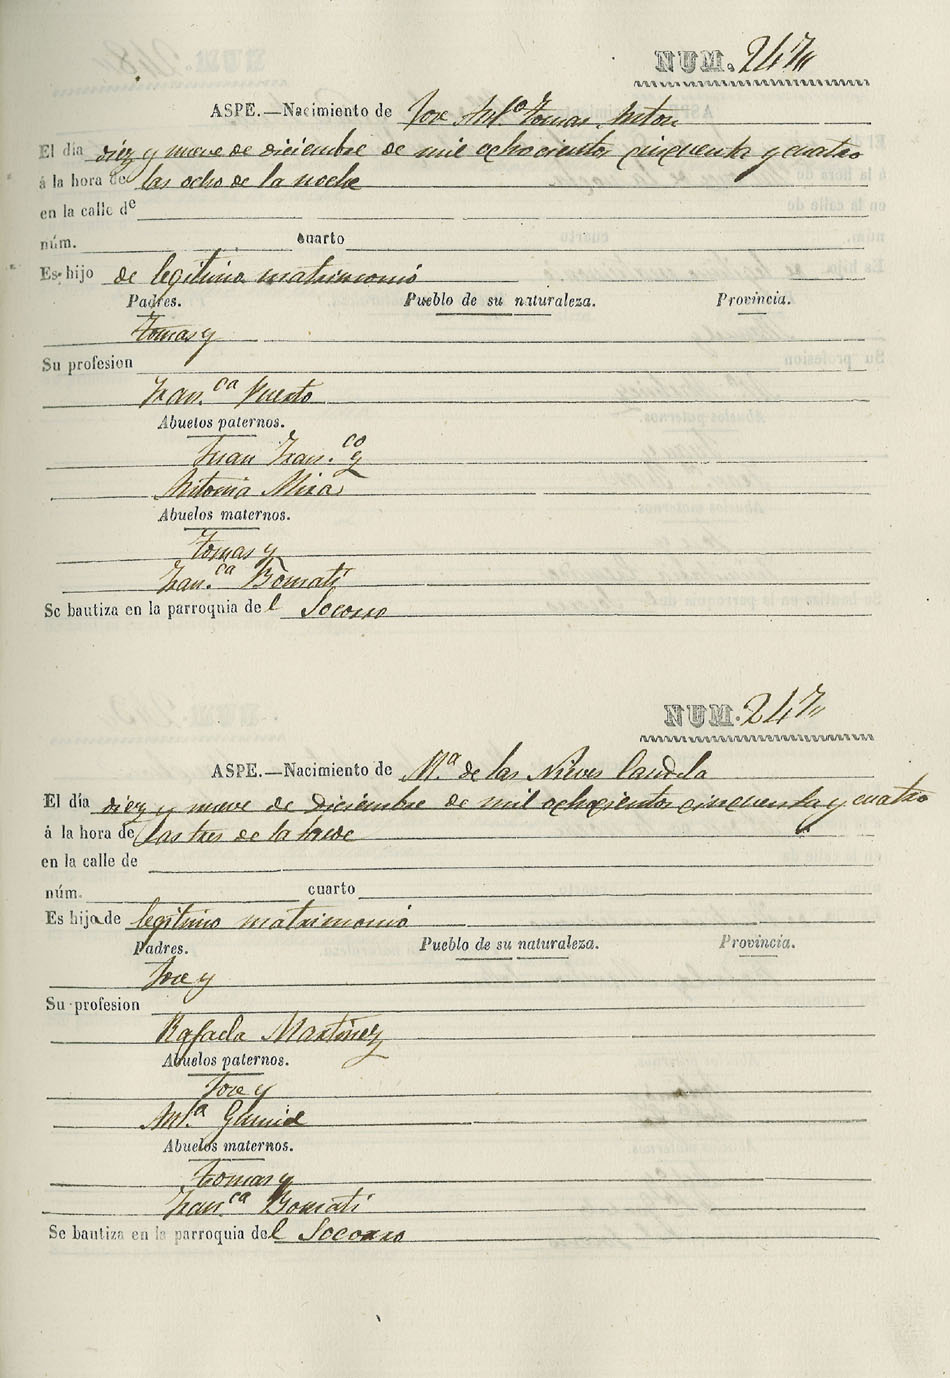 NUM. 247
ASPE.—Nacimiento de Jose Ant.o Tomas Anton
El día diez y nueve de diciembre de mil ochocientos cincuenta y cuatro
á la hora de las ocho de la noche
en la calle de
núm. cuarto
Es hijo de legitimo matrimonio
Padres. Pueblo de su naturaleza. Provincia.
Tomas y
Su profesion
Fran.ca Puerto
Abuelos paternos.
Juan Fran.co y
Antonia Mira
Abuelos maternos.
Tomas y
Fran.ca Bomati
Se bautiza en la parroquia del Socorro
NUM. 247
ASPE.—Nacimiento de M.a de las Nieves Candela
El día diez y nueve de Diciembre de mil ochocientos cincuenta y cuatro
á la hora de las tres de la tarde
en la calle de
núm. cuarto
Es hija de legitimo matrimonio
Padres. Pueblo de su naturaleza. Provincia.
Jose y
Su profesion
Rafaela Martinez
Abuelos paternos.
Jose y
Ant.a
Abuelos maternos.
Tomas y
Fran.ca Bomati
Se bautiza en la parroquia del Socorro